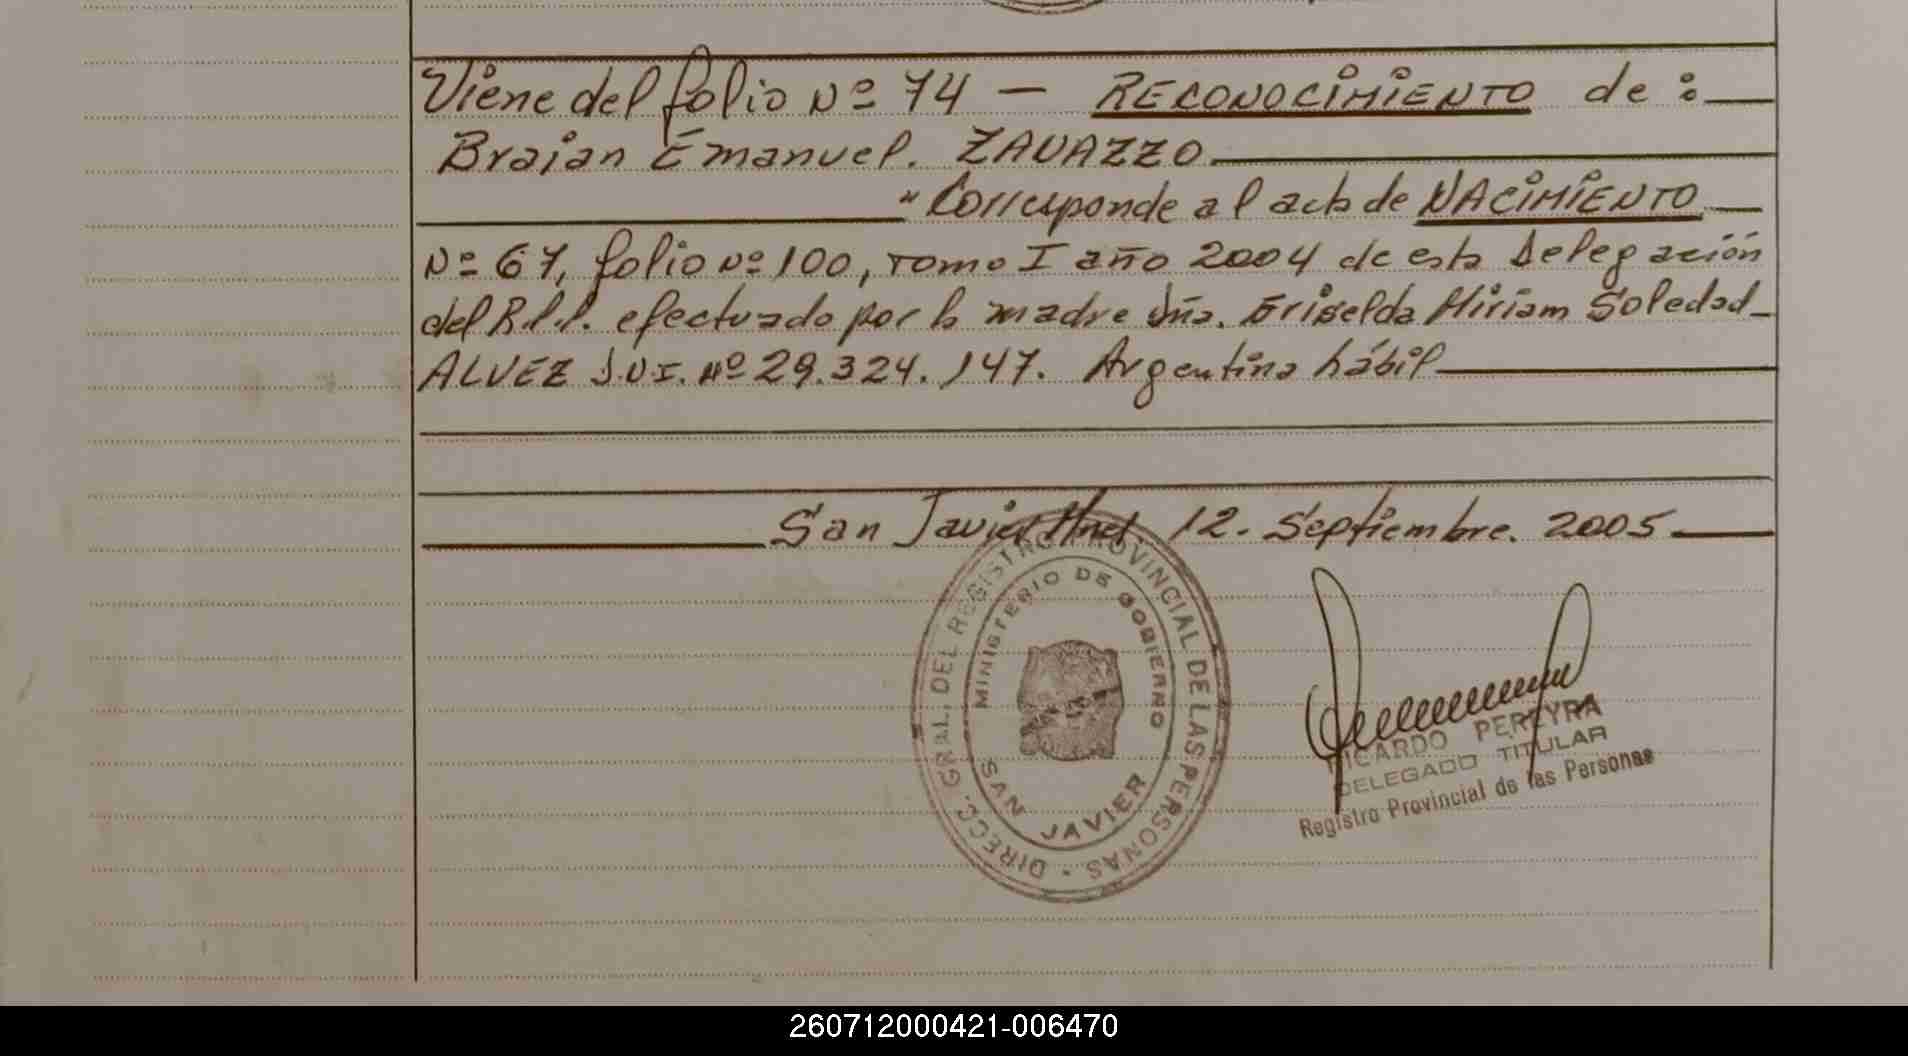 Viene del folio Nº 74 — RECONOCIMIENTO de :
Braian Emanuel. ZAVAZZO
"Corresponde al acta de NACIMIENTO
Nº 67, folio nº 100, Tomo I año 2004 de esta Delegación
del R.P.P. efectuado por la madre Dña. Griselda Miriam Soledad
ALVEZ D.N.I. Nº 29.324.147. Argentina hábil
San Javier Mnes 12. Septiembre. 2005
DIRECC. GRAL. DEL REGISTRO PROVINCIAL DE LAS PERSONAS
MINISTERIO DE GOBIERNO
SAN JAVIER
RICARDO PEREYRA
DELEGADO TITULAR
Registro Provincial de las Personas
260712000421-006470